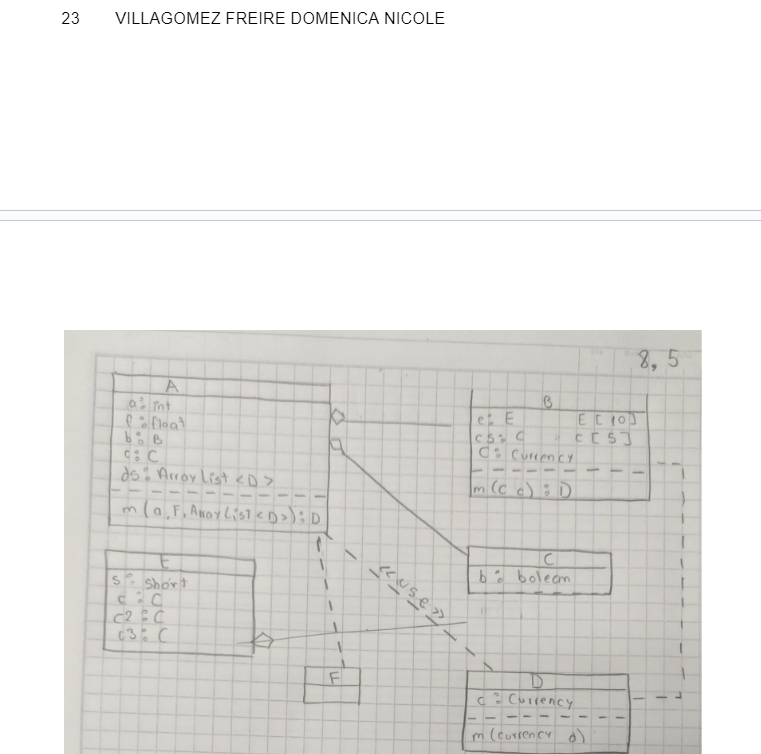 23 VILLAGOMEZ FREIRE DOMENICA NICOLE
8,5
A
a: int
f: float
b: B
c: C
ds: ArrayList <D>
m (a, F, ArrayList <D>): D
B
e: E E [10]
cs: C c [5]
C: Currency
m (C c) : D
C
b: boleam
<<use>>
E
s: short
c: C
c2: C
c3: C
F
D
c: Currency
m (currency d)